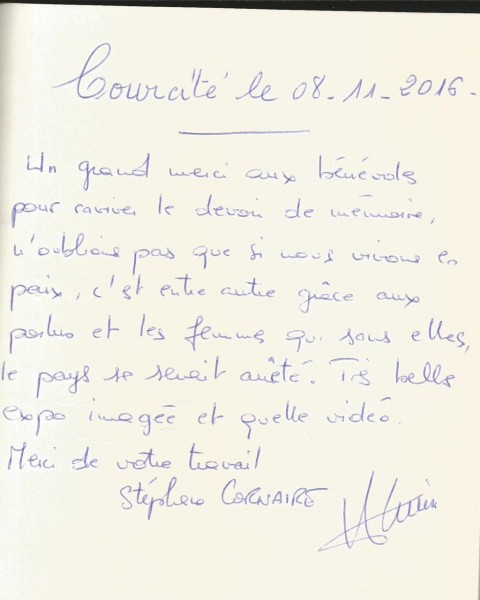 Courcité le 08-11-2016.
Un grand merci aux bénévoles
pour raviver le devoir de mémoire,
n'oublions pas que si nous vivons en
paix, c'est entre autre grâce aux
poilus et les femmes qui sans elles,
le pays se serait arrêté. Très belle
expo imagée et quelle vidéo.
Merci de votre travail
CORNAIRE